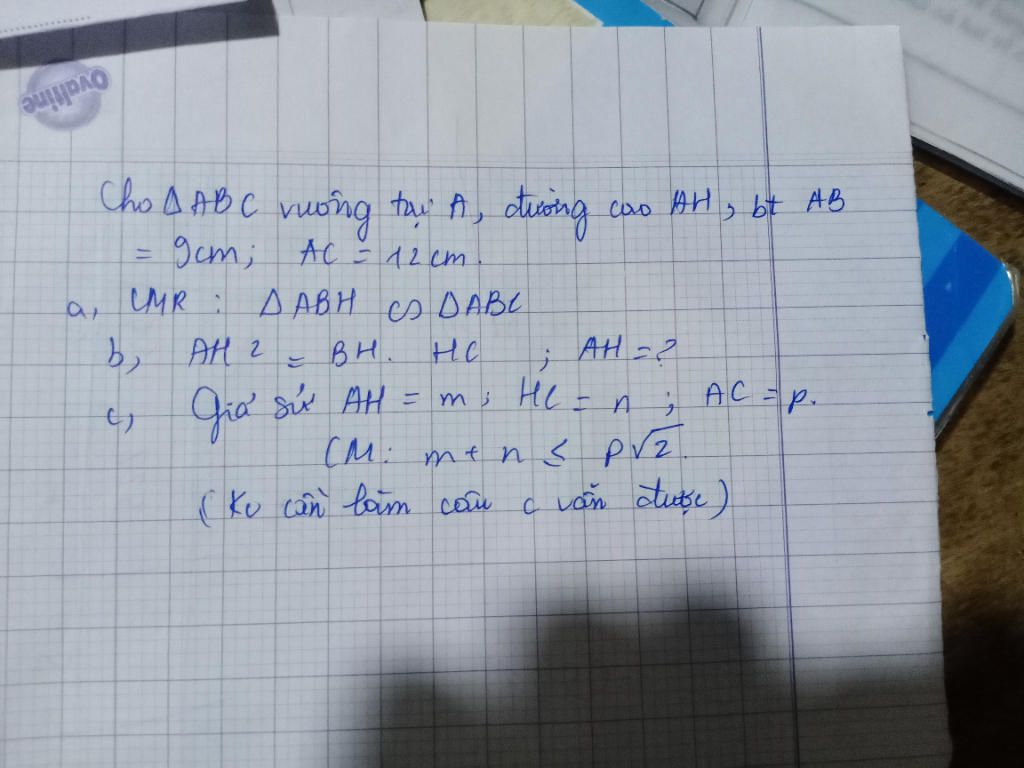 Ovaltine
Cho ΔABC vuông tại A, đường cao AH, bt AB
= 9cm; AC = 12cm.
a, CMR : ΔABH ∽ ΔABC
b, AH2 = BH. HC ; AH = ?
c, Giả sử AH = m; HC = n; AC = p.
CM: m + n ≤ p√2.
(Ko cần làm câu c vẫn được)